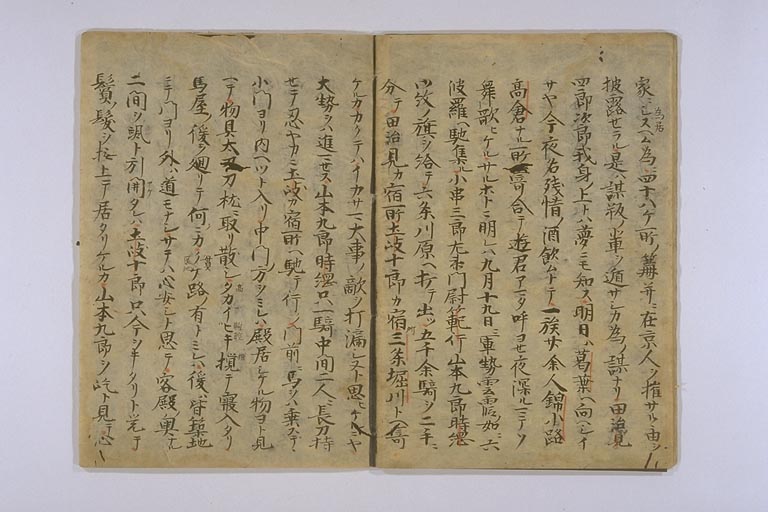 家ニ居スヘム為、四十八ケ所ノ篝并ニ在京人ヲ催サル由ヲ
披露セラル是ハ謀叛ノ輩ヲ遁サシカ為ノ謀ナリ田治見
四郎次郎我身ノ上トハ夢ニモ知ス明日ハ葛葉ヘ向ヘシイ
サヤ今夜名残惜酒飲ムトテ一族廿余人錦小路
高倉ナル所ニ寄合テ遊君アマタ呼ヨセ夜深ルマテソ
舞歌ヒケルサルホトニ明レハ九月十九日ニ軍勢雲霞如ニ六
波羅ヘ馳集ル小串三郎左衛門尉範行山本九郎時綱
四紋ノ旗ヲ給テ六条川原ヘ打テ出ツ五千余騎ヲ二手ニ
分テ田治見カ宿所土岐十郎カ宿所三条堀川ト寄
ケルカカクテハイカサマ大事ノ敵ヲ打漏シヌト思ヒケルヤ
大勢ヲハ進マセス山本九郎時綱只一騎中間二人ニ長刀持
セテ忍ヤカニ土岐カ宿所ヘ馳テ行ク門前ニ馬ヲハ乗ステ
小門ヨリ内ヘツト入リ中門ノ方ヲミレハ殿居シケル物ヨト見
ヘテ物具太刀刀枕ニ取リ散シタカイヒキ掻テ寝入タリ
馬屋ノ後ヲ廻リテ何ニカヌケ路ノ有トミレハ後ハ皆築地
ニテ門ヨリ外ハ道モナシサテハ心安シト思テ客殿ノ奥ナル
二間ヲ颯ト引開タレハ土岐十郎只今ヲキタリト覚テ
鬢ノ髪ヲ掻上テ居タリケルカ山本九郎ヲ屹ト見テ心